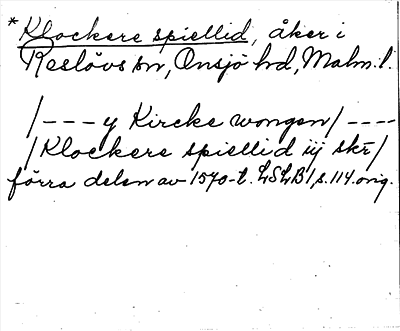 *Klockere spiellid, åker i
Reslövs sn, Onsjö hd, Malm. l.
/--- y Kircke wongen/ ----
/Klockere spiellid iij skr̄/
förra delen av 1570-t. LSLB 1, s. 114. orig.